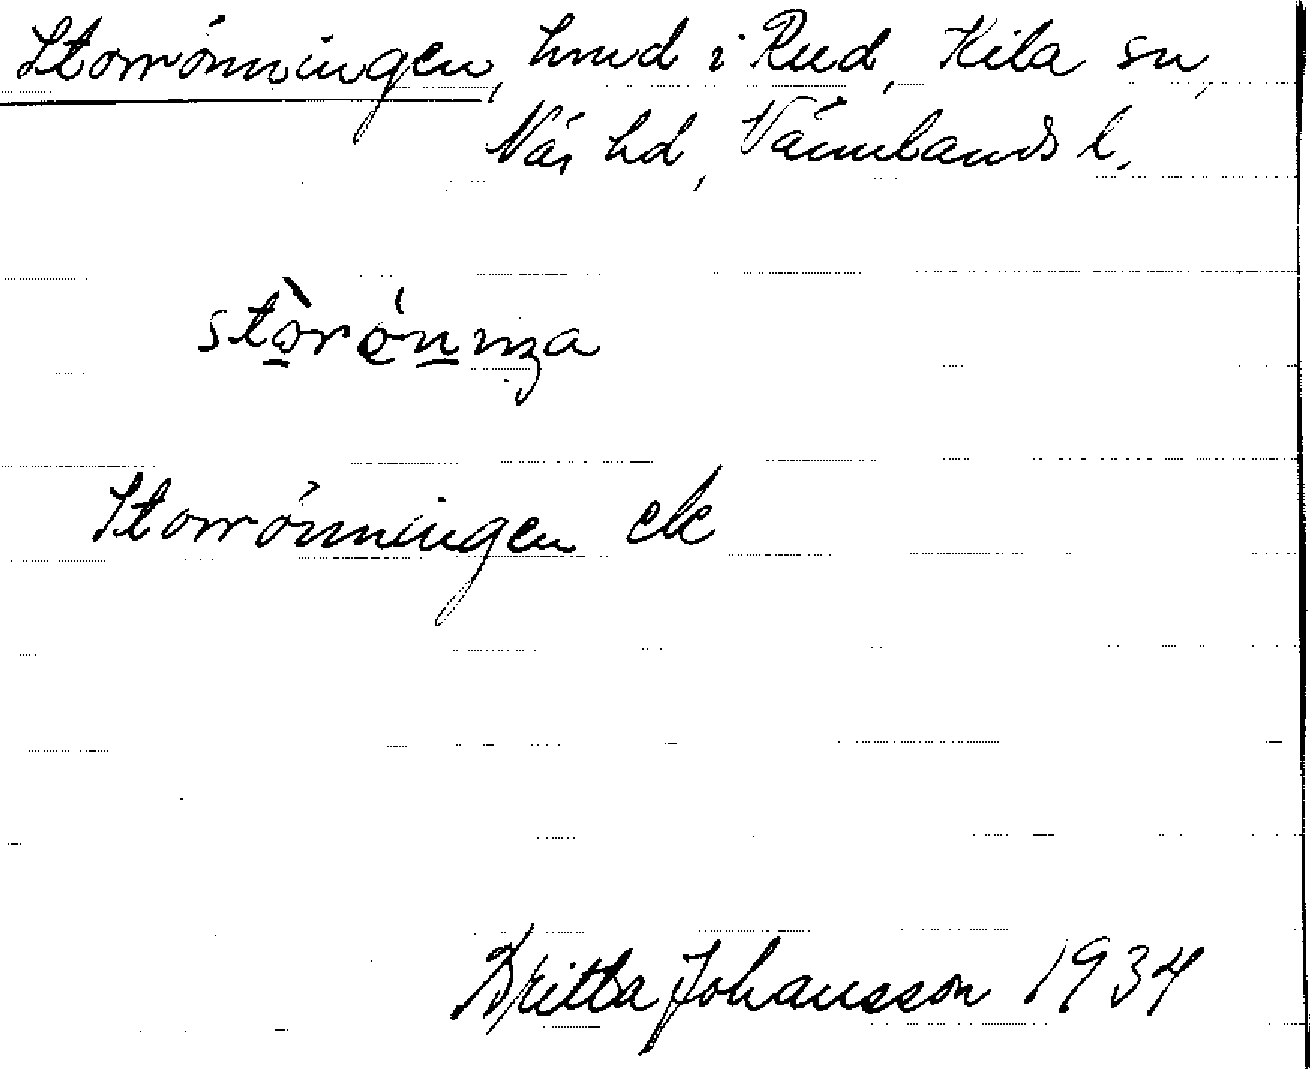 Storrönningen, hmd i Rud, Kila sn,
Näs hd, Värmlands l.
Storrönningen ek
Britta Johansson 1934